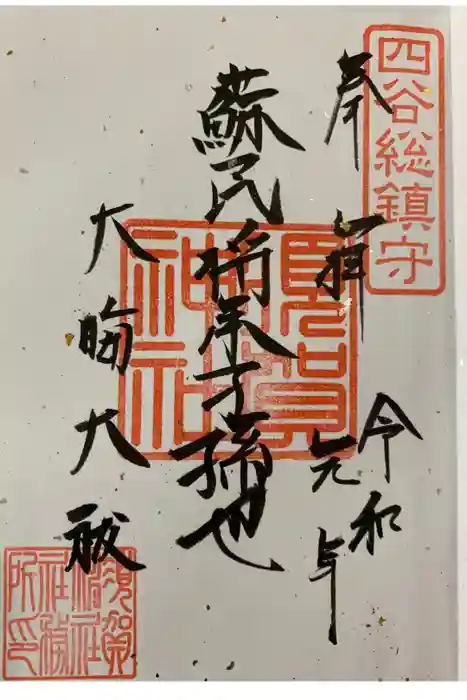 四谷総鎮守
奉拝
令和
元年
蘇民将来子孫也
大晦大祓
須賀神社
須賀神社社務所印